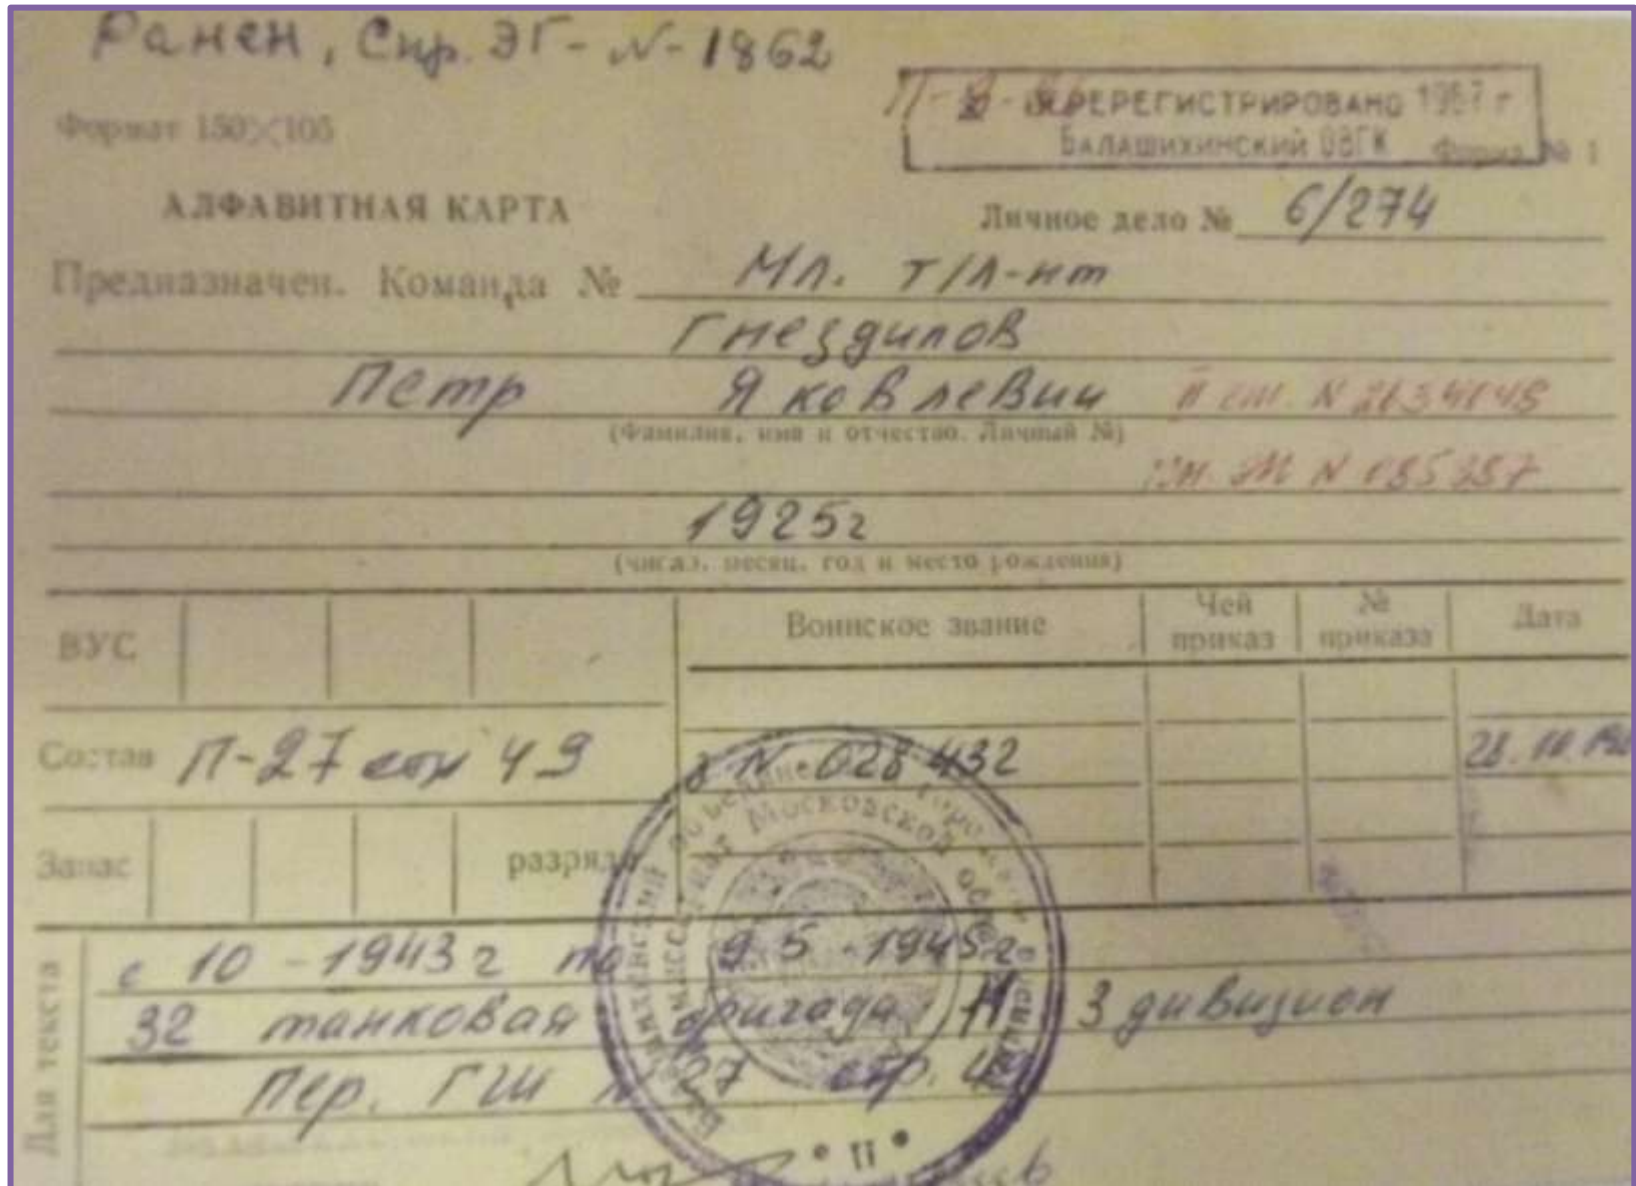 Ранен, Спр. ЭГ-N-1862
ПЕРЕРЕГИСТРИРОВАНО 1987 г
БАЛАШИХИНСКИЙ ОВГК
Формат 150×105
Форма № 1
АЛФАВИТНАЯ КАРТА
Личное дело № 6/274
Предназначен. Команда № Мл. т/л-нт
Гнездилов
Петр Яковлевич II ст. N
(Фамилия, имя и отчество. Личный №)
1925г
(число, месяц, год и место рождения)
ВУС Воинское звание Чей приказ № приказа Дата
Состав П-27 стр 49 N-028432
Запас разряд
с 10-1943г по 9.5-1945г
32 танковая бригада 3 дивизион
Пер. ГШ N 27 стр.
Для текста
Московской